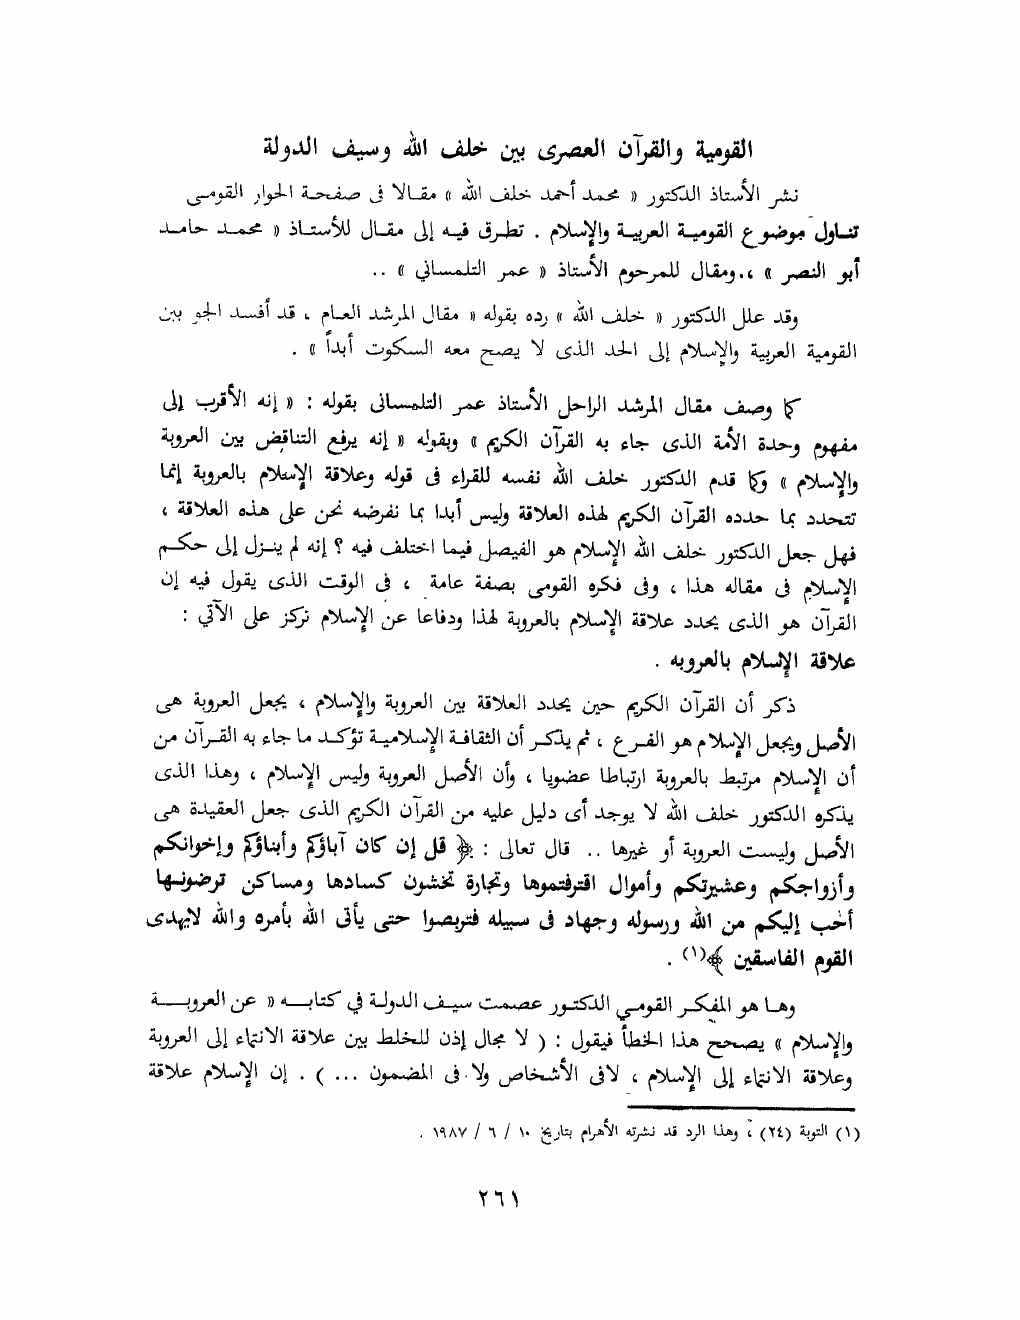 القومية والقرآن العصرى بين خلف الله وسيف الدولة
نشر الأستاذ الدكتور « محمد أحمد خلف الله » مقالا فى صفحة الحوار القومى
تناول موضوع القومية العربية والإسلام . تطرق فيه إلى مقال للأستاذ « محمد حامد
أبو النصر » ،.ومقال للمرحوم الأستاذ « عمر التلمساني » ..
وقد علل الدكتور « خلف الله » رده بقوله « مقال المرشد العام ، قد أفسد الجو بين
القومية العربية والإسلام إلى الحد الذى لا يصح معه السكوت أبداً » .
كما وصف مقال المرشد الراحل الأستاذ عمر التلمسانى بقوله : « إنه الأقرب إلى
مفهوم وحدة الأمة الذى جاء به القرآن الكريم » وبقوله « إنه يرفع التناقض بين العروبة
والإسلام » وكما قدم الدكتور خلف الله نفسه للقراء فى قوله وعلاقة الإسلام بالعروبة إنما
تتحدد بما حدده القرآن الكريم لهذه العلاقة وليس أبدا بما نفرضه نحن على هذه العلاقة ،
فهل جعل الدكتور خلف الله الإسلام هو الفيصل فيما اختلف فيه ؟ إنه لم ينزل إلى حكم
الإسلام فى مقاله هذا ، وفى فكره القومى بصفة عامة ، فى الوقت الذى يقول فيه إن
القرآن هو الذى يحدد علاقة الإسلام بالعروبة لهذا ودفاعا عن الإسلام نركز على الآتي :
علاقة الإسلام بالعروبه .
ذكر أن القرآن الكريم حين يحدد العلاقة بين العروبة والإسلام ، يجعل العروبة هى
الأصل ويجعل الإسلام هو الفرع ، ثم يذكر أن الثقافة الإسلامية تؤكد ما جاء به القرآن من
أن الإسلام مرتبط بالعروبة ارتباطا عضويا ، وأن الأصل العروبة وليس الإسلام ، وهذا الذى
يذكره الدكتور خلف الله لا يوجد أى دليل عليه من القرآن الكريم الذى جعل العقيدة هى
الأصل وليست العروبة أو غيرها .. قال تعالى : ﴿ قل إن كان آباؤكم وأبناؤكم وإخوانكم
وأزواجكم وعشيرتكم وأموال اقترفتموها وتجارة تخشون كسادها ومساكن ترضونها
أحب إليكم من الله ورسوله وجهاد فى سبيله فتربصوا حتى يأتى الله بأمره والله لايهدى
القوم الفاسقين ﴾(١) .
وها هو المفكر القومي الدكتور عصمت سيف الدولة في كتابه « عن العروبة
والإسلام » يصحح هذا الخطأ فيقول : ( لا مجال إذن للخلط بين علاقة الانتماء إلى العروبة
وعلاقة الانتماء إلى الإسلام ، لافى الأشخاص ولا فى المضمون ... ) . إن الإسلام علاقة
(١) التوبة (٢٤) ، وهذا الرد قد نشرته الأهرام بتاريخ ١٠ / ٦ / ١٩٨٧ .
٢٦١